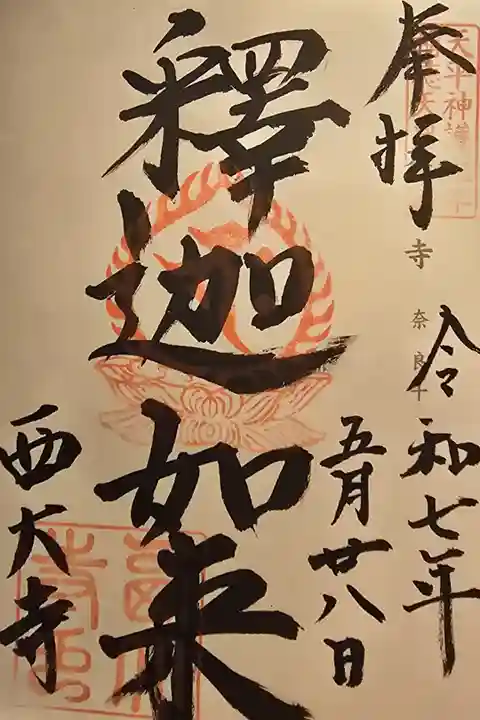 奉拝
令和七年
五月廿八日
釋迦如来
西大寺
天平神護
寺
奈良十